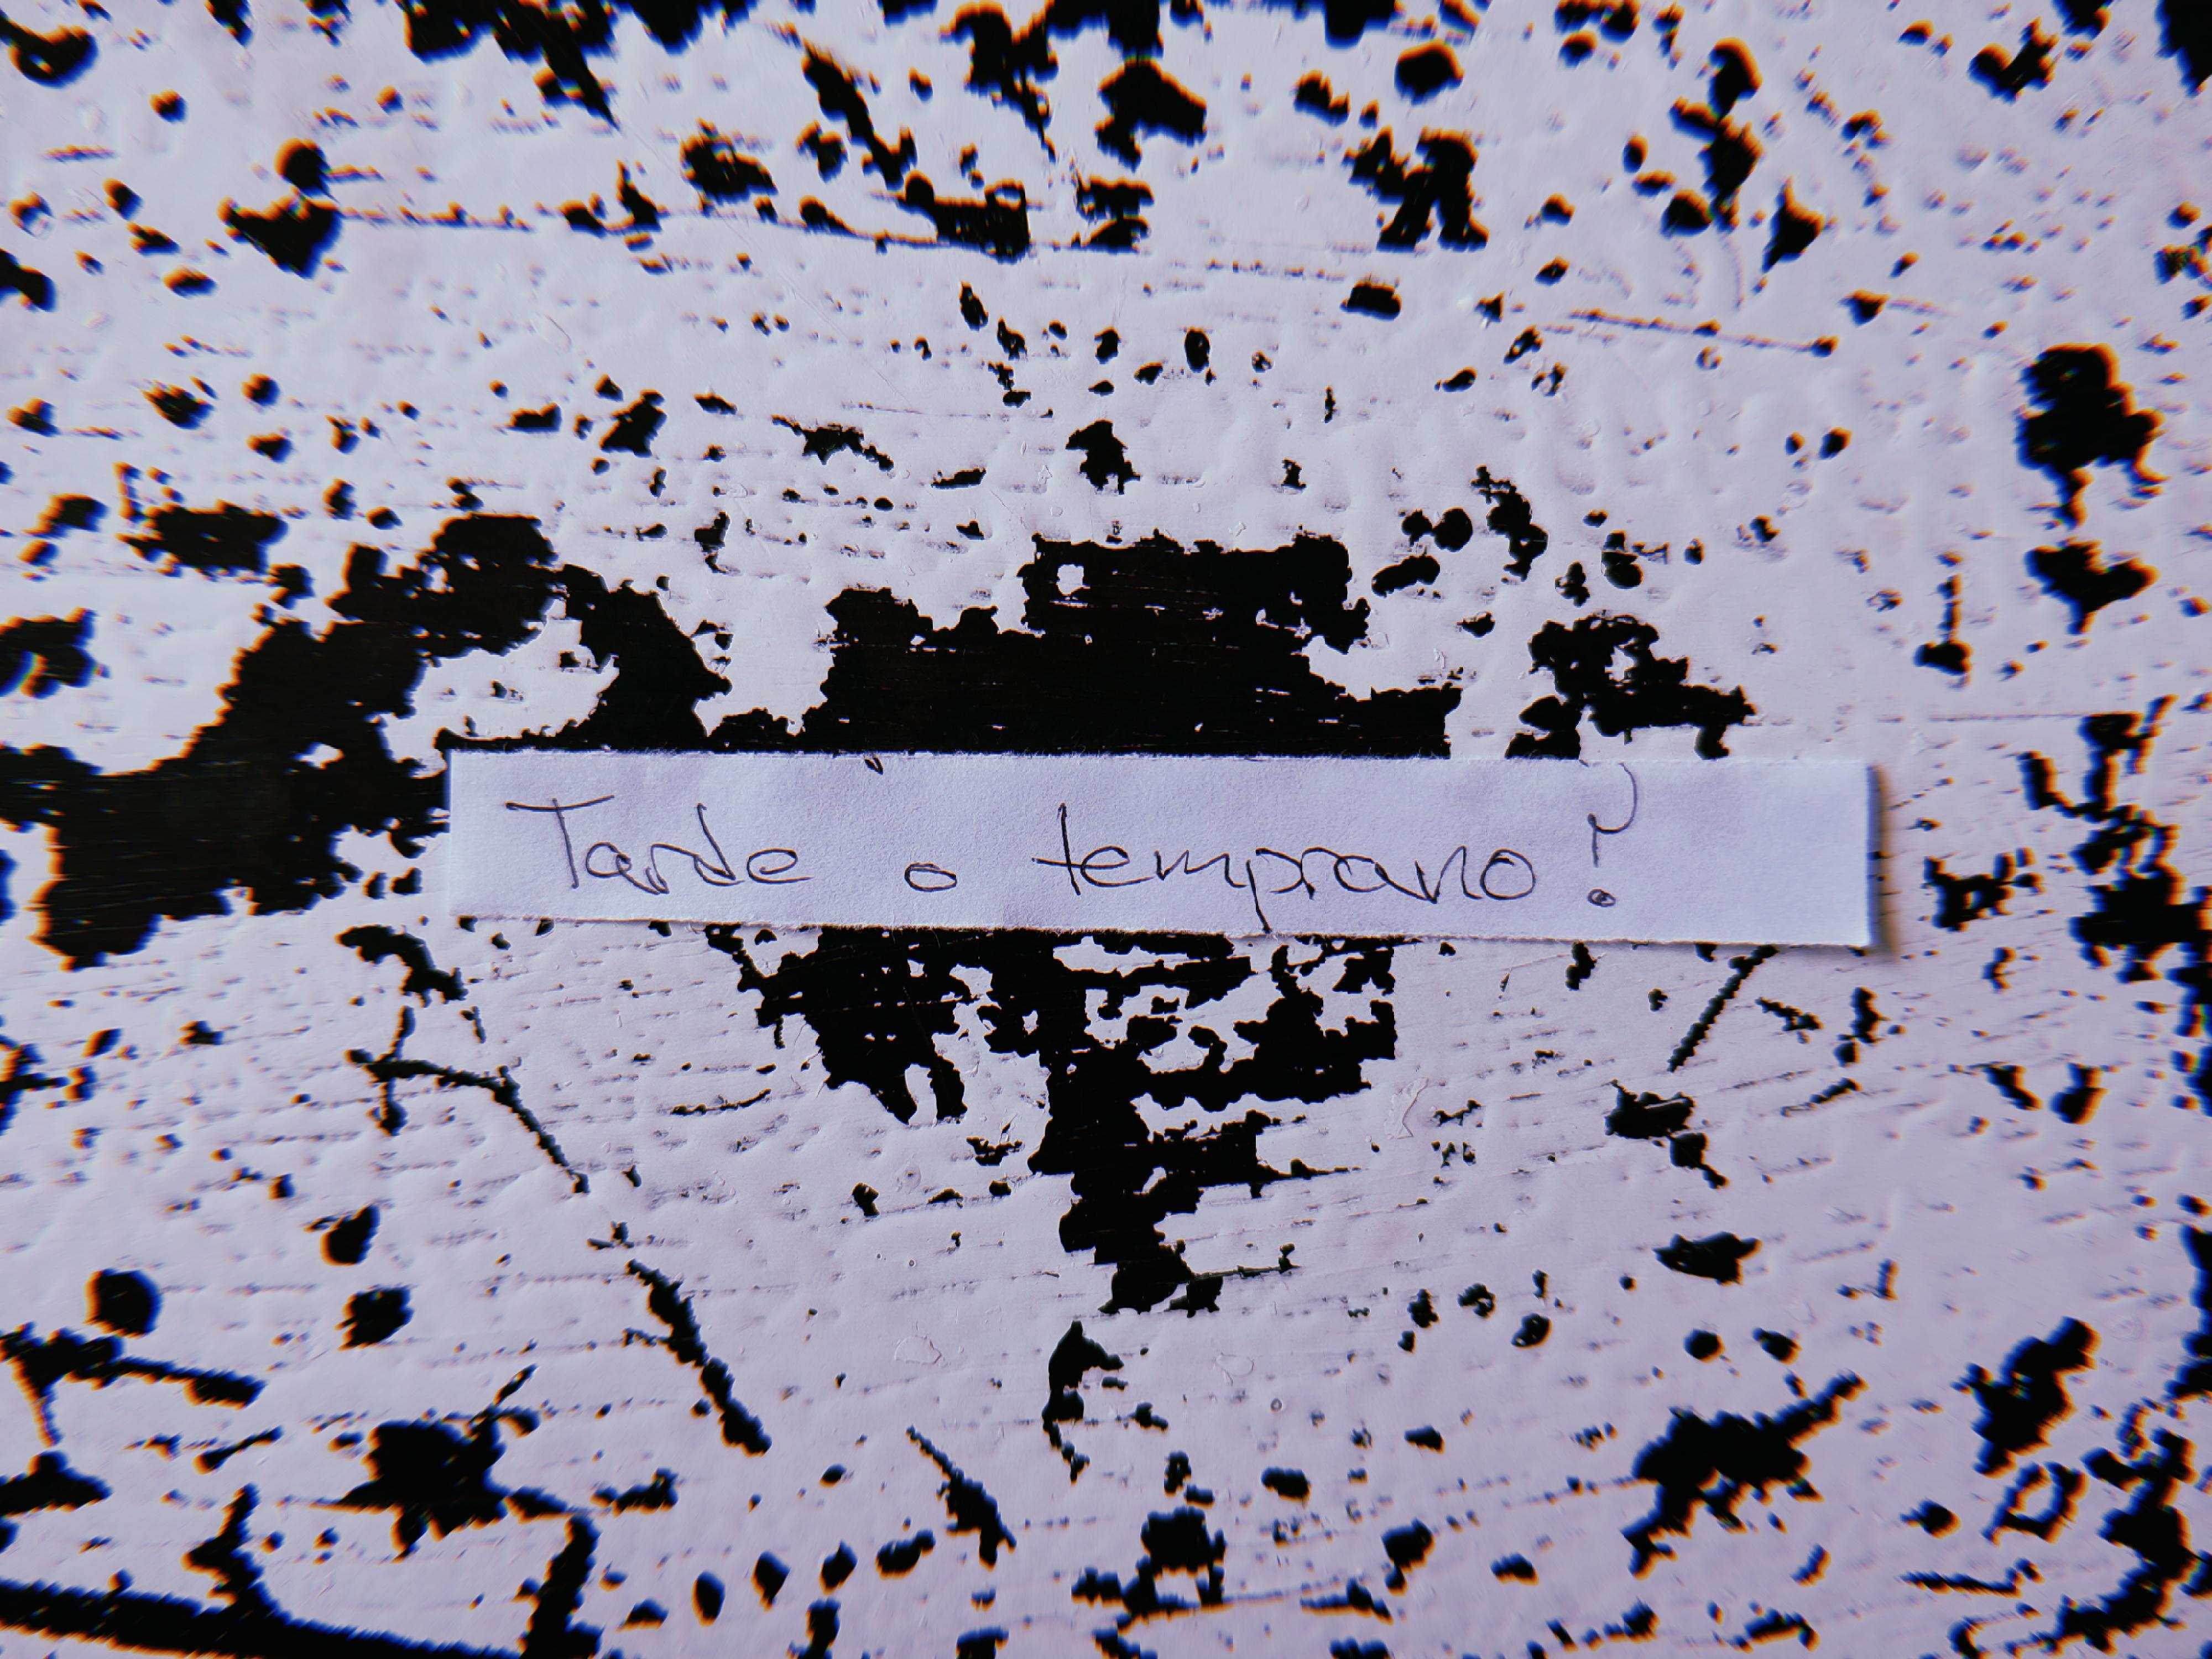 Tarde o temprano?